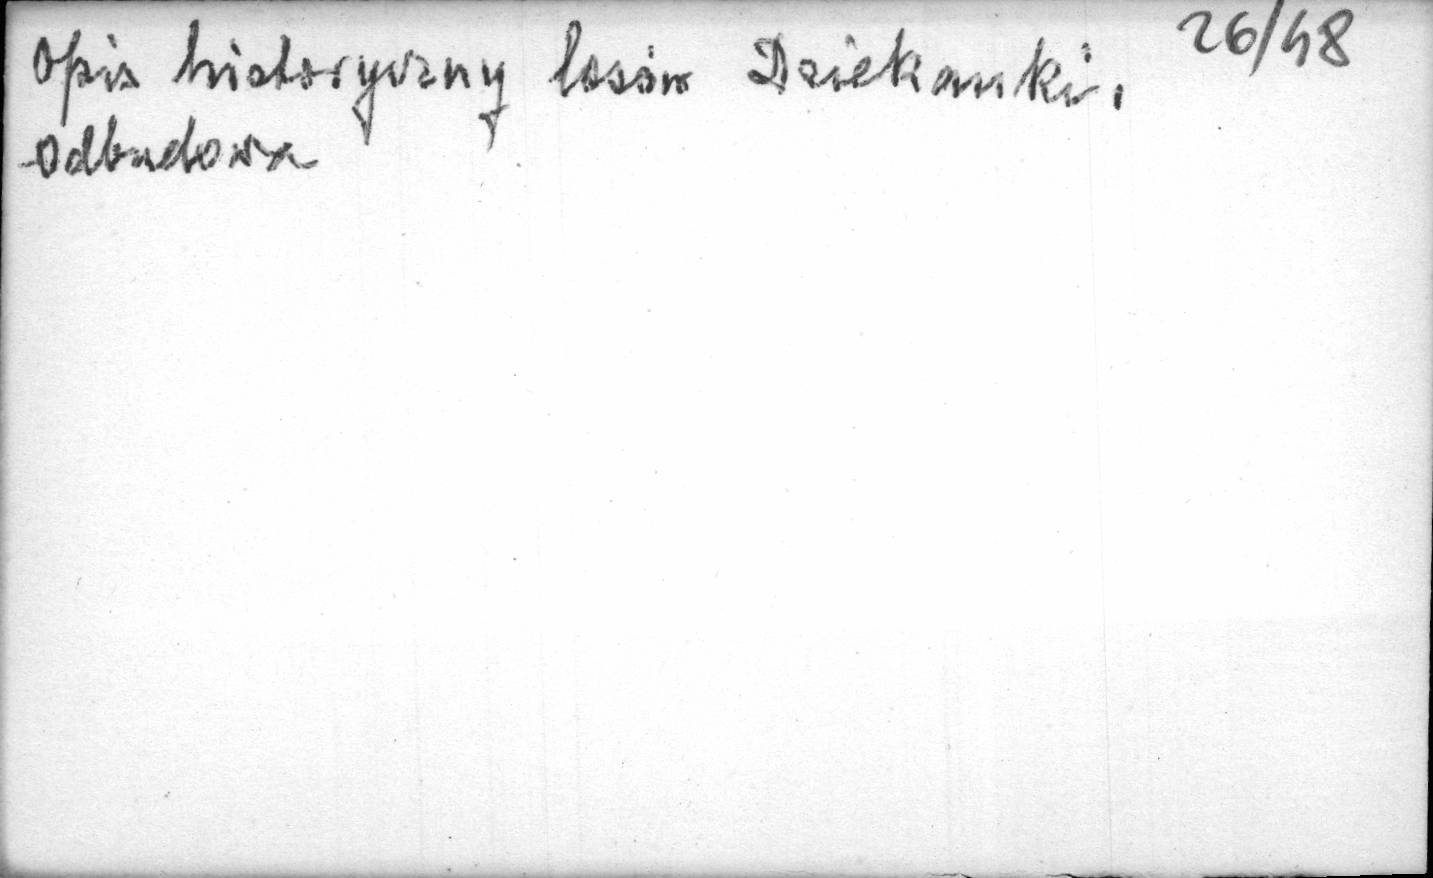 Opis historyczny losów Dziekanki, 26/48
odbudowa